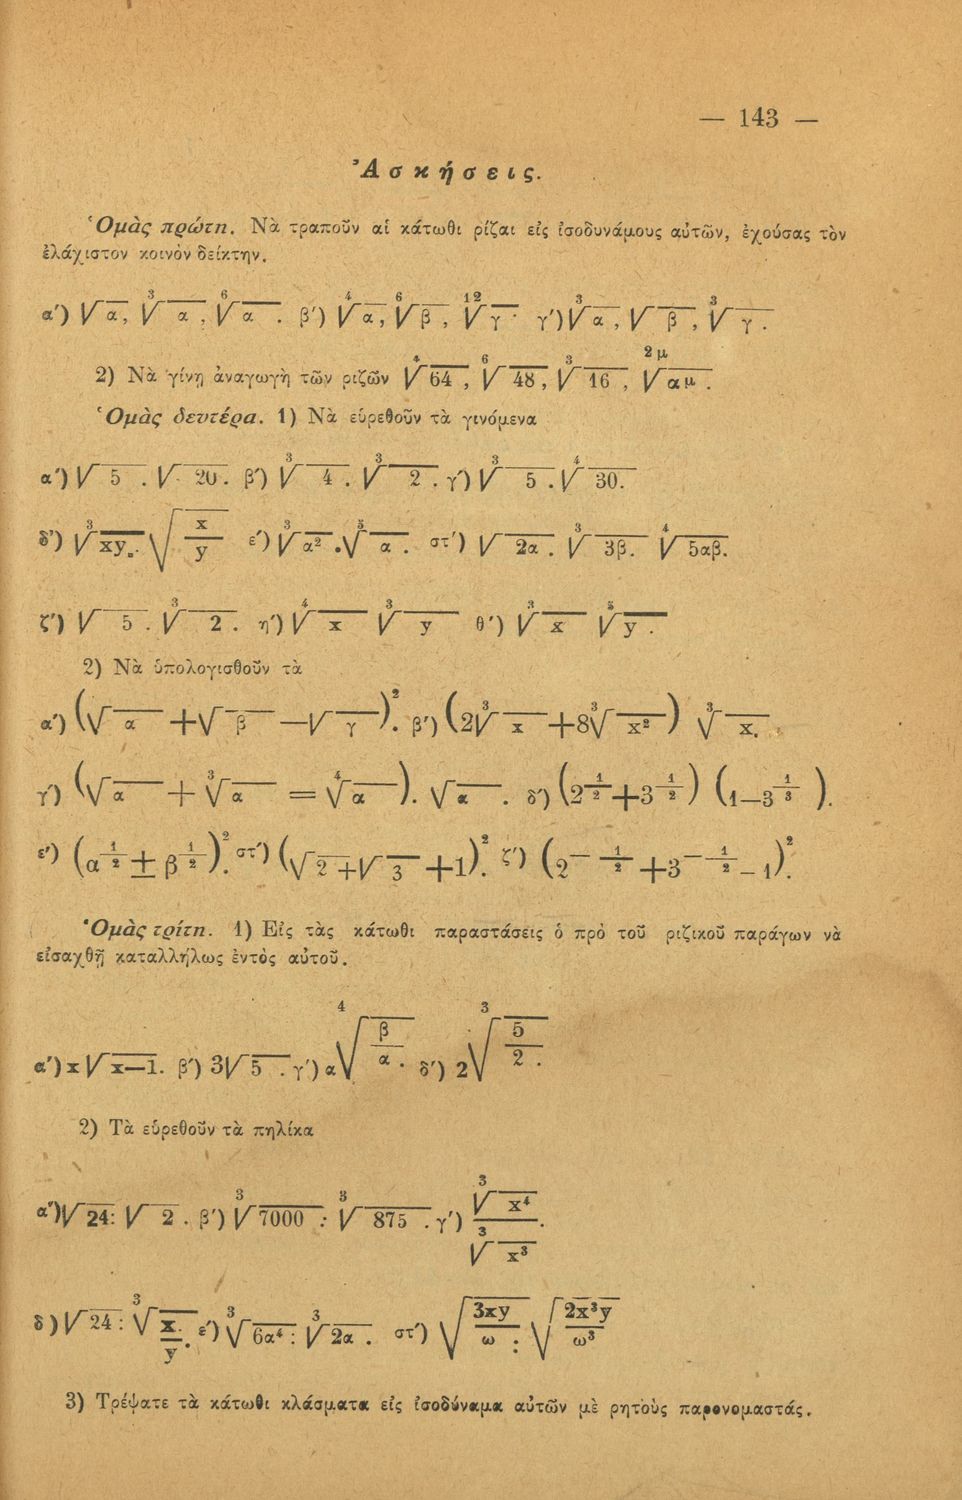 — 143 —
Ἀσκήσεις.
Ὁμὰς πρώτη. Νὰ τραποῦν αἱ κάτωθι ρίζαι εἰς ἰσοδυνάμους αὐτῶν, ἐχούσας τὸν
ἐλάχιστον κοινὸν δείκτην.
α') √α, ∛α, ⁶√α . β') ⁴√α, ⁶√β, ¹²√γ · γ') ∛α, √β, ∛γ .
2) Νὰ γίνῃ ἀναγωγὴ τῶν ριζῶν ⁴√64, ⁶√48, ∛16, ²ᵘ√αᵘ .
Ὁμὰς δευτέρα. 1) Νὰ εὑρεθοῦν τὰ γινόμενα
α') √5 . √20. β') ∛4 . ∛2 . γ') ∛5 . ⁴√30.
δ') ∛xy . √(x/y) ε') ∛α² . ⁵√α . στ') √2α . ∛3β. ⁴√5αβ.
ζ') √5 . ∛2 . η') ⁴√x ∛y θ') ∛x ⁵√y .
2) Νὰ ὑπολογισθοῦν τὰ
α') (√α +√β —√γ)². β') (2∛x +8∛x²) ∛x.
γ') (√α + ∛α = ⁴√α ). √α . δ') (2^(1/2)+3^(1/2)) (1—3^(1/3) ).
ε') (α^(1/2) ± β^(1/2))². στ') (√2+√3 +1)². ζ') (2^(-1/2) +3^(-1/2) - 1)².
Ὁμὰς τρίτη. 1) Εἰς τὰς κάτωθι παραστάσεις ὁ πρὸ τοῦ ριζικοῦ παράγων νὰ
εἰσαχθῇ καταλλήλως ἐντὸς αὐτοῦ.
α') x√x—1. β') 3√5 . γ') α⁴√(β/α) . δ') 2∛(5/2) .
2) Τὰ εὑρεθοῦν τὰ πηλίκα
α') √24: √2 . β') ∛7000 : ∛875 . γ') ∛x⁴/∛x³.
δ) √24 : ∛(x/y). ε') ∛6α⁴ : ∛2α . στ') √(3xy/ω) : √(2x³y/ω³)
3) Τρέψατε τὰ κάτωθι κλάσματα εἰς ἰσοδύναμα αὐτῶν μὲ ρητοὺς παρονομαστάς.